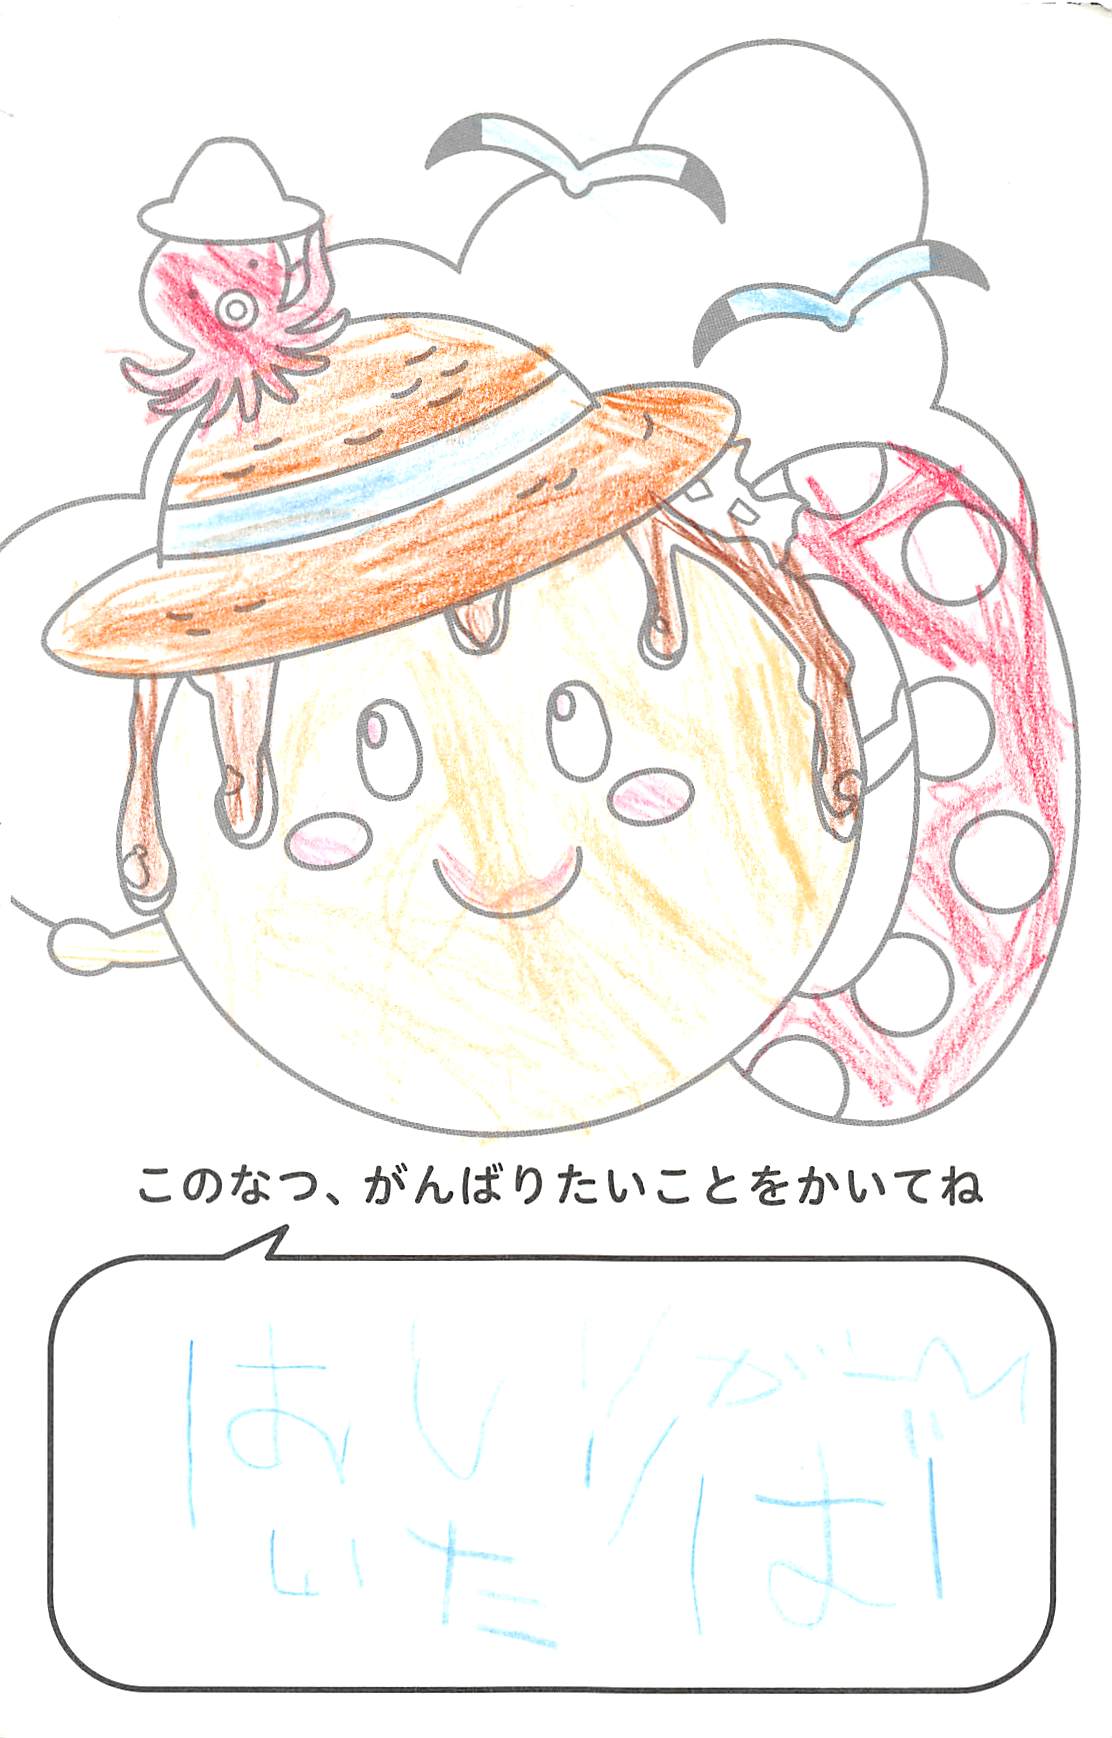 このなつ、がんばりたいことをかいてね
はしりがん
ばたい